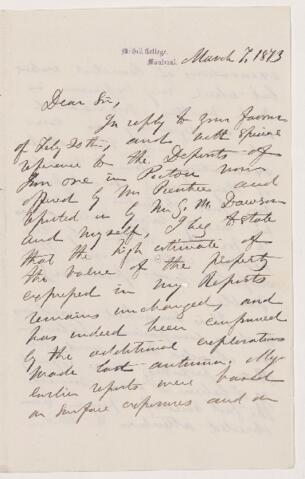 McGill College,
Montreal,
March 7, 1873
Dear Sir,
In reply to your favour
of Feby 20th, and with special
reference to the Deposits of
Iron ore in Pictou now
offered by Mr and
reported on by Mr G. M. Dawson
and myself, I beg to state
that the high estimate of
the value of the property
expressed in my Reports
remains unchanged, and
has indeed been confirmed
by the additional explorations
made last autumn. My
earlier reports were based
on surface exposures and on